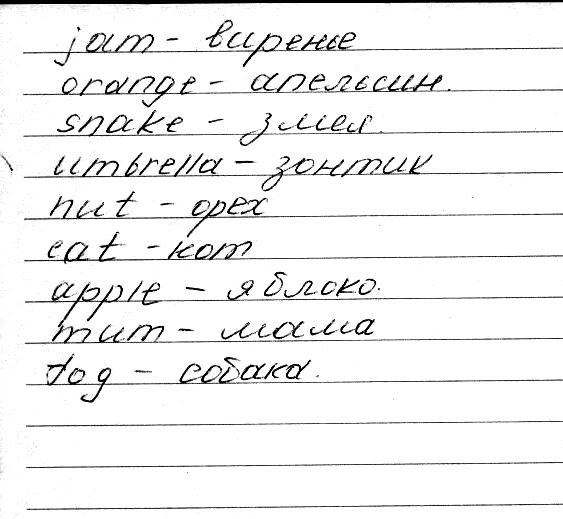 jam - виренье
orange - апельсин.
snake - змея.
umbrella - зонтик
nut - орех
cat - кот
apple - яблоко.
mum - мама
dog - собака.